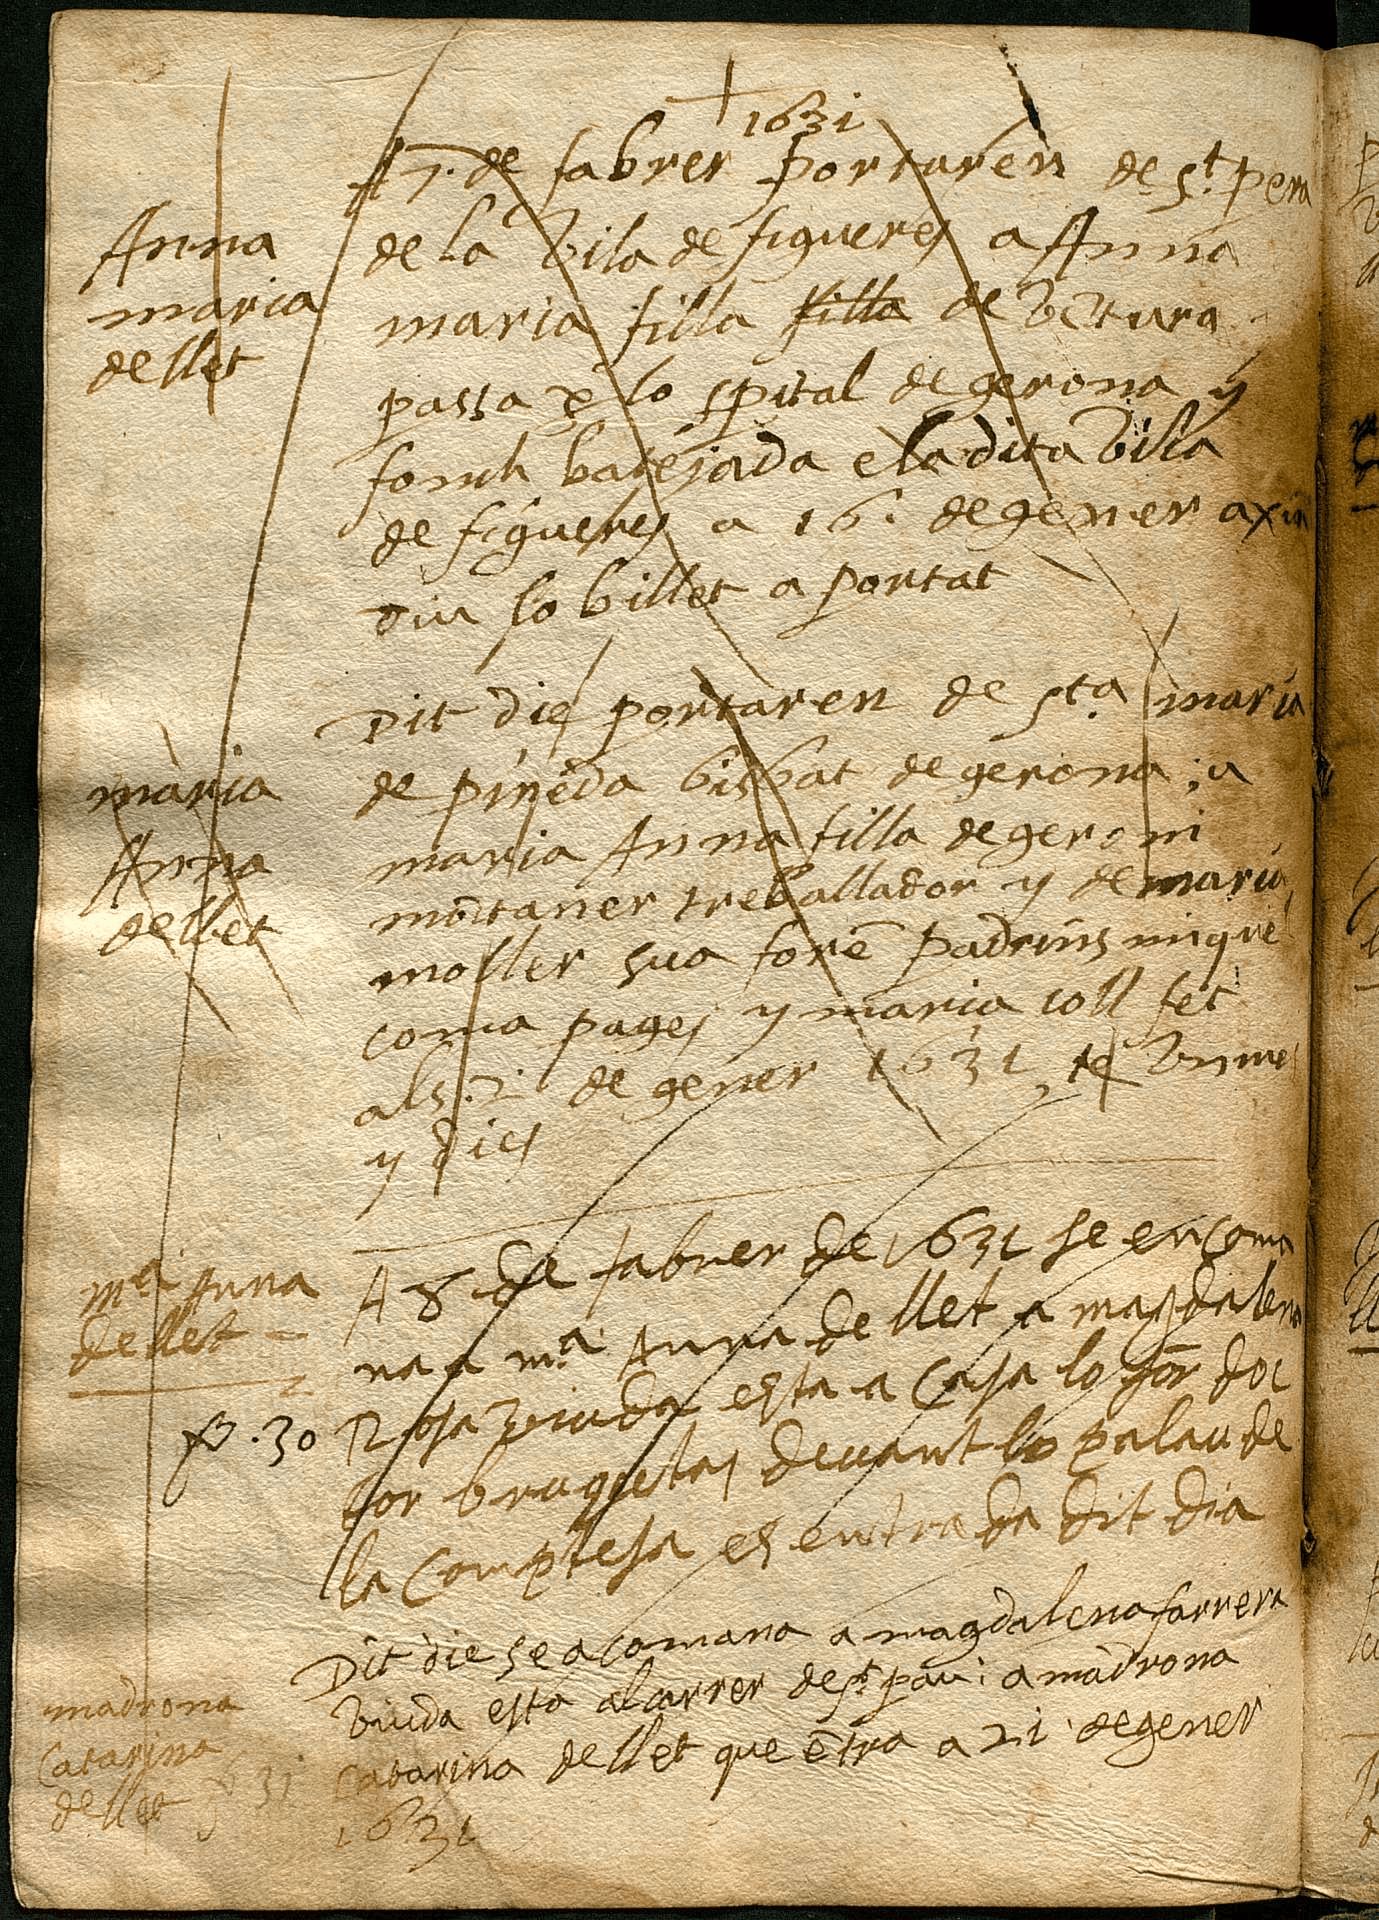 1631
A 7. de fabrer portaren de st. pera
Anna
maria
de llet
de la vila de figueres a Anna
maria filla filla de Ventura
passa p lo spital de gerona y
fonch batejada e la dita vila
de figueres a 16. de gener axin
diu lo billet a portat
Dit die portaren de sta. maria
maria
Anna
de llet
de pineda bisbat de gerona; a
maria Anna filla de geroni
montaner treballador y de maria
moller sua forẽ padrins miquel
coma pages y maria coll fet
als de gener 1631 te un mes
y dies
ma. Anna
de llet
A 8 de fabrer de 1631 se encoma
na a ma. Anna de llet a magdalena
Rosa viuda esta a casa lo sor. doc
fo. 30
tor bruguetas devant lo palau de
la comptesa es entrada dit dia
Dit die se acomana a magdalena farrera
viuda esta al carrer de st. pau; a madrona
madrona
Catarina
de llet
fo. 31
catarina de llet que ẽtra a 21 de gener
1631